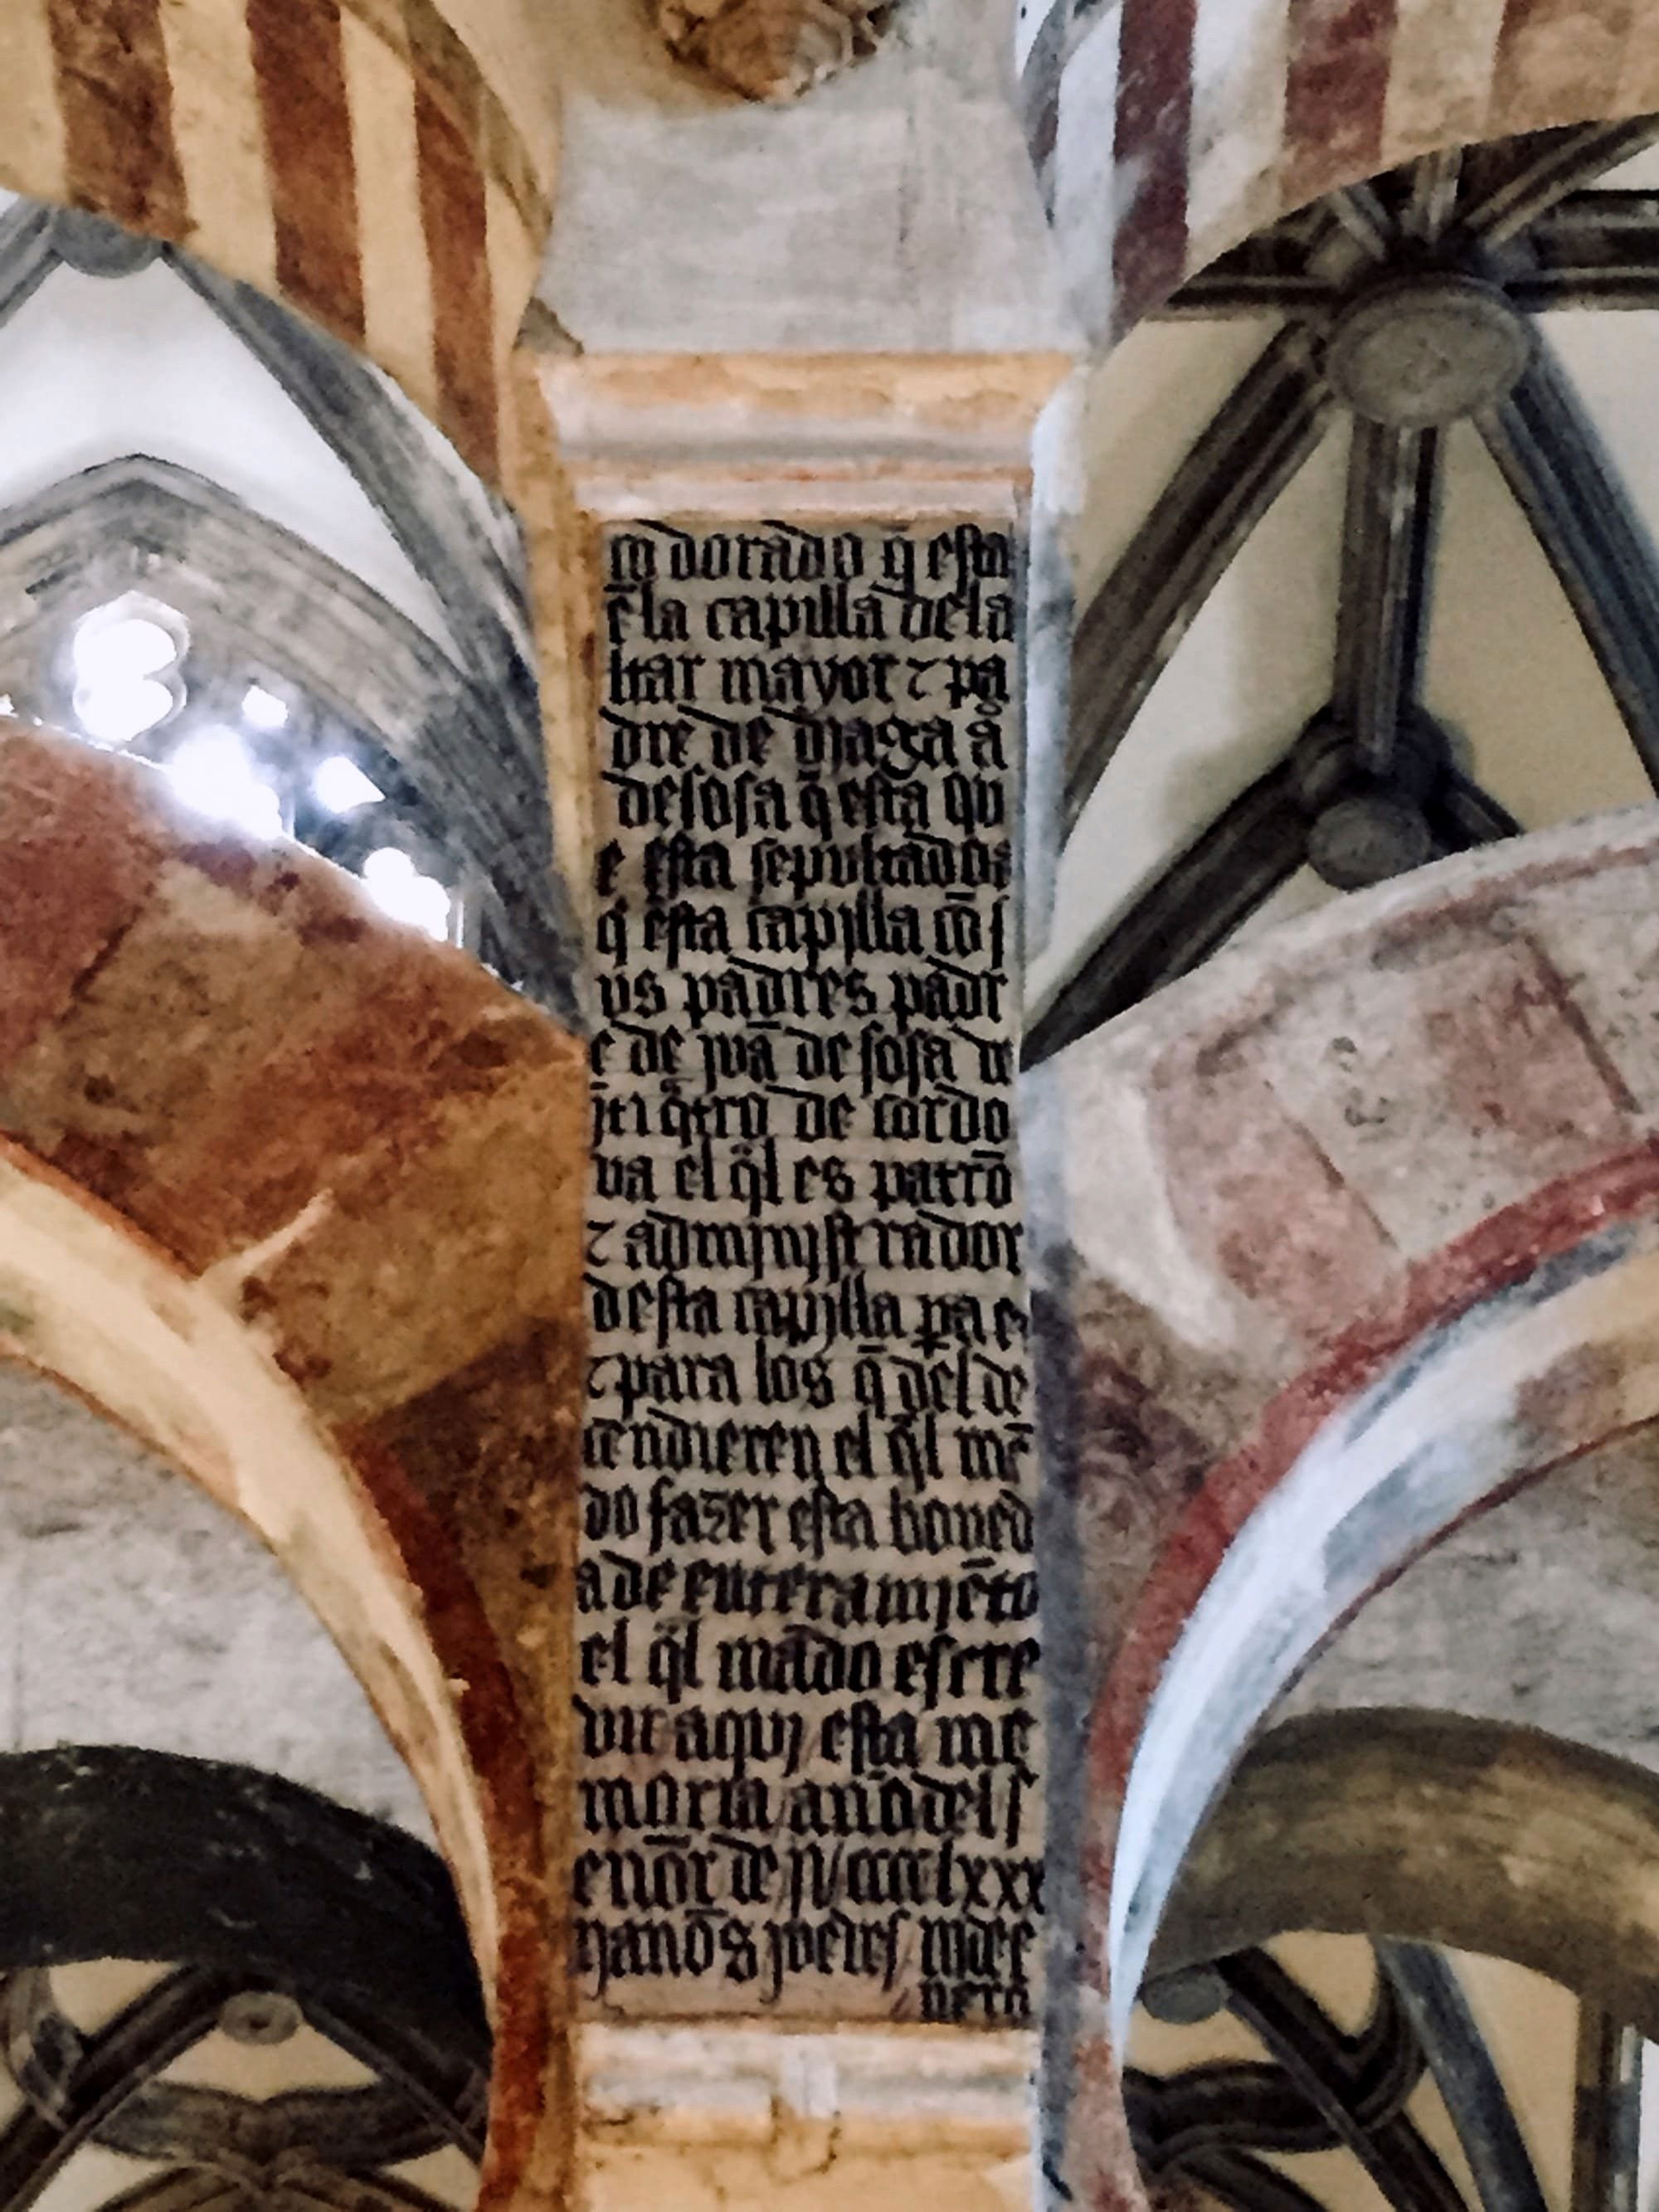 co dorado q̄ esta
ē la capilla de la
ltar mayor ⁊ pa
dre de diaga å
de sosa q̄ esta qu
e esta sepultados
q̄ esta capilla cō s
us padres padr
e de juā de sosa ve
ȷ̄ti q̊tro de cordo
va el q̄l es patrō
⁊ administrador
desta capilla ꝑa e
⁊ para los q̄ del de
cendieren el q̄l mē
do fazer esta boved
a de enterramiēto
el q̄l mādo escre
vir aquj esta me
moria / año del s
eñor de / cccclxxx
años